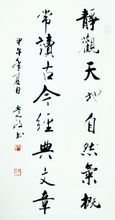 靜觀天地自然氣概
常讀古今經典文章
甲午年夏日